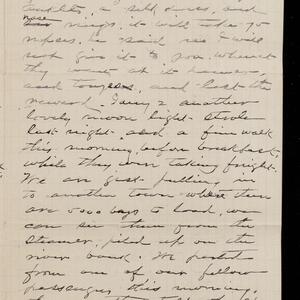 anklets, a silk dress, and
nose rings, it will take 75
rupees, he said no I will
not give it to you, whereat
they went at it hammer,
and tongs, and last the
reward. I any 2 another
lovely moon light stroll
last night, and a fine walk
this morning before breakfast,
while they were taking freight.
We are just pulling in
to another town where there
are 5000 bags to load, we
can see them from the
steamer, piled up on the
river bank. We parted
from one of our fellow
passengers this morning,